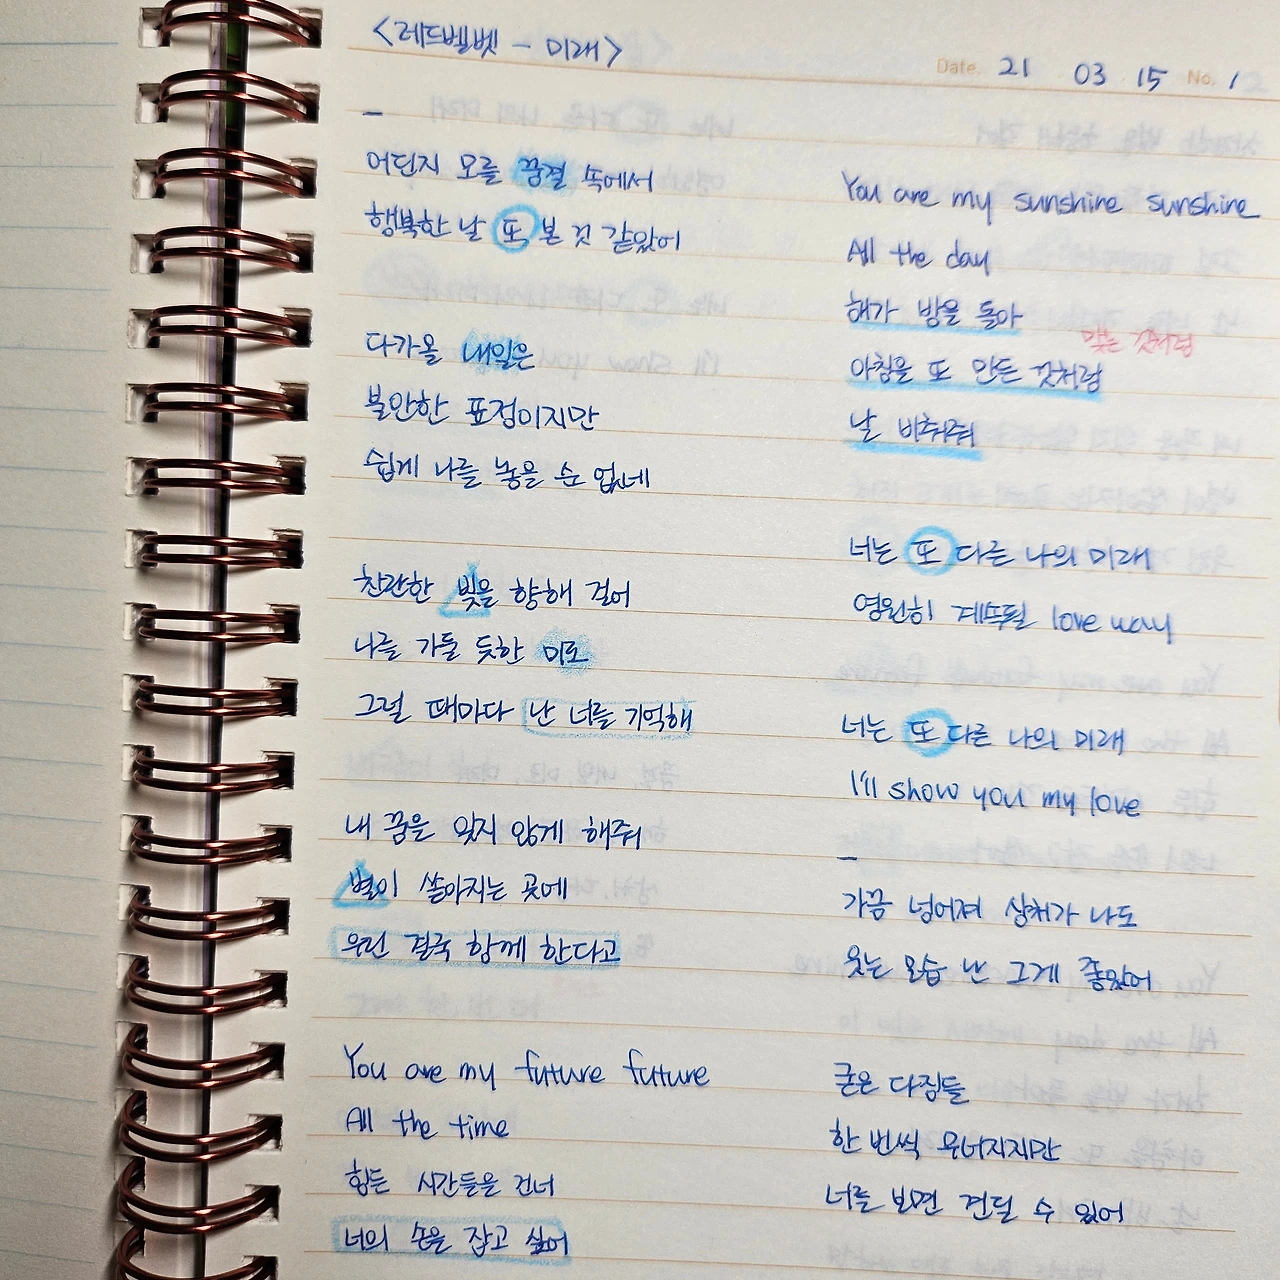 <레드벨벳 - 미래>
Date. 21 03 15 No. 1
-
어딘지 모를 꿈결 속에서
행복한 날 또 본 것 같았어
다가올 내일은
불안한 표정이지만
쉽게 나를 놓을 순 없네
찬란한 빛을 향해 걸어
나를 가둘 듯한 미로
그럴 때마다 난 너를 기억해
내 꿈을 잊지 않게 해줘
별이 쏟아지는 곳에
우린 결국 함께 한다고
You are my future future
All the time
힘든 시간들을 건너
너의 손을 잡고 싶어
You are my sunshine sunshine
All the day
해가 밤을 돌아
맞는 것처럼
아침을 또 만든 것처럼
날 비춰줘
너는 또 다른 나의 미래
영원히 계속될 love way
너는 또 다른 나의 미래
I'll show you my love
-
가끔 넘어져 상처가 나도
웃는 모습 난 그게 좋았어
굳은 다짐들
한 번씩 무너지지만
너를 보면 견딜 수 있어